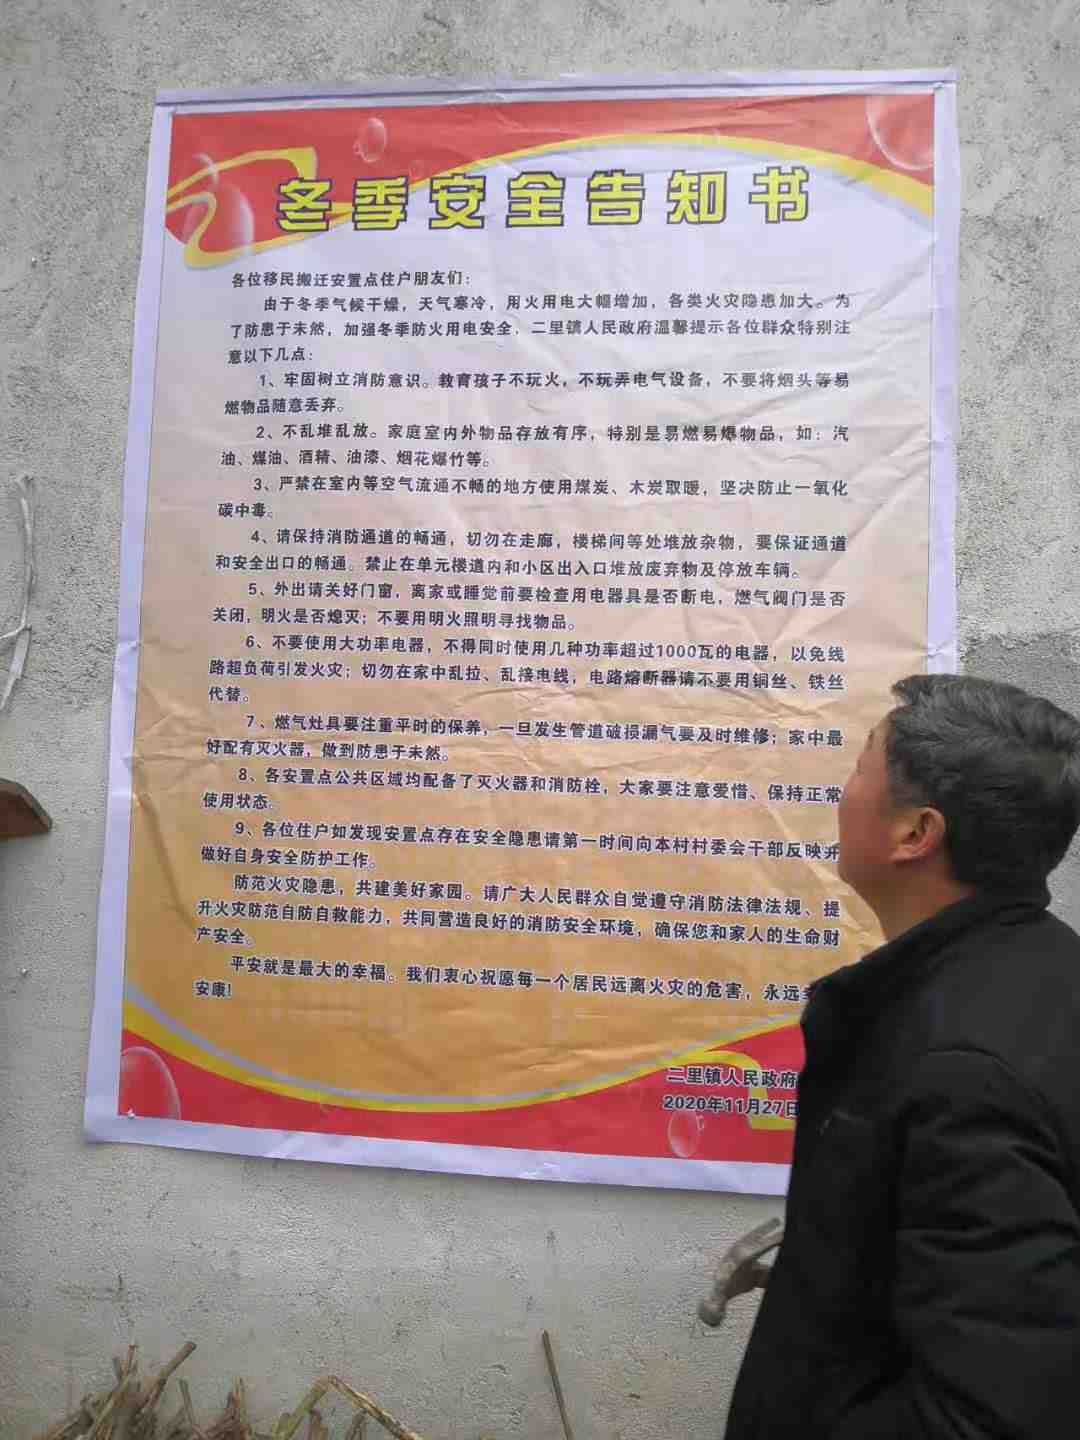 冬季安全告知书
各位移民搬迁安置点住户朋友们：
由于冬季气候干燥，天气寒冷，用火用电大幅增加，各类火灾隐患加大。为
了防患于未然，加强冬季防火用电安全，二里镇人民政府温馨提示各位群众特别注
意以下几点：
1、牢固树立消防意识。教育孩子不玩火，不玩弄电气设备，不要将烟头等易
燃物品随意丢弃。
2、不乱堆乱放。家庭室内外物品存放有序，特别是易燃易爆物品，如：汽
油、煤油、酒精、油漆、烟花爆竹等。
3、严禁在室内等空气流通不畅的地方使用煤炭、木炭取暖，坚决防止一氧化
碳中毒。
4、请保持消防通道的畅通，切勿在走廊，楼梯间等处堆放杂物，要保证通道
和安全出口的畅通。禁止在单元楼道内和小区出入口堆放废弃物及停放车辆。
5、外出请关好门窗，离家或睡觉前要检查用电器具是否断电，燃气阀门是否
关闭，明火是否熄灭；不要用明火照明寻找物品。
6、不要使用大功率电器，不得同时使用几种功率超过1000瓦的电器，以免线
路超负荷引发火灾；切勿在家中乱拉、乱接电线，电路熔断器请不要用铜丝、铁丝
代替。
7、燃气灶具要注重平时的保养，一旦发生管道破损漏气要及时维修；家中最
好配有灭火器，做到防患于未然。
8、各安置点公共区域均配备了灭火器和消防栓，大家要注意爱惜、保持正常
使用状态。
9、各位住户如发现安置点存在安全隐患请第一时间向本村村委会干部反映并
做好自身安全防护工作。
防范火灾隐患，共建美好家园。请广大人民群众自觉遵守消防法律法规、提
升火灾防范自防自救能力，共同营造良好的消防安全环境，确保您和家人的生命财
产安全。
平安就是最大的幸福。我们衷心祝愿每一个居民远离火灾的危害，永远
安康！
二里镇人民政府
2020年11月27日